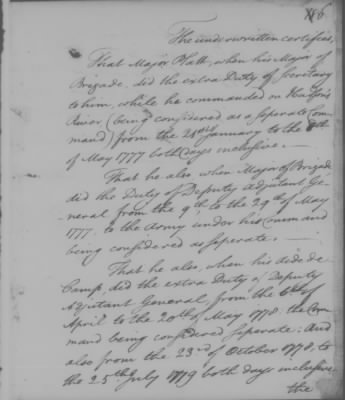 The underwritten certifies,
That Major Platt, when his Major of
Brigade, did the extra Duty of Secretary
to him, while he commanded on Hudson's
River (being considered as a seperate Com
mand) from the 21st January to the 8th
of May 1777 both days inclusive. —
That he also when Major of Brigade
did the Duty of Deputy Adjutant Ge-
neral from the 9th, to the 29th of May
1777. to the Army under his Command
being considered as seperate. —
That he also, when his aide de
Camp, did the extra Duty of Deputy
Adjutant General, from the of
April to the 20th of May 1778. the Com
mand being considered seperate: And
also from the 23rd of October 1778, to
the 25th July 1779 both days inclusive,
the